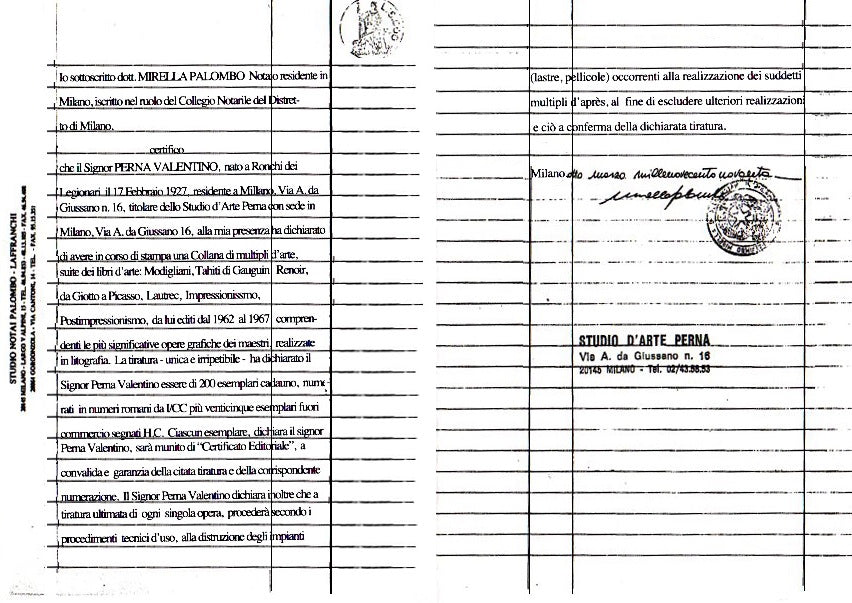 Io sottoscritto dott. MIRELLA PALOMBO Notaio residente in
Milano, iscritto nel ruolo del Collegio Notarile del Distret-
to di Milano,
certifico
che il Signor PERNA VALENTINO, nato a Ronchi dei
Legionari, il 17 Febbraio 1927, residente a Millano, Via A. da
Giussano n. 16, titolare dello Studio d'Arte Perna con sede in
Milano, Via A. da Giussano 16, alla mia presenza ha dichiarato
di avere in corso di stampa una Collana di multipli d'arte,
suite dei libri d'arte: Modigliani, Tahiti di Gauguin Renoir,
da Giotto a Picasso, Lautrec, Impressionissmo,
Postimpressionismo, da lui editi dal 1962 al 1967 compren-
denti le più significative opere grafiche dei maestri, realizzate
in litografia. La tiratura - unica e irripetibile - ha dichiarato il
Signor Perna Valentino essere di 200 esemplari cadauno, nume-
rati in numeri romani da I/CC più venticinque esemplari fuori
commercio segnati H.C. Ciascun esemplare, dichiara il signor
Perna Valentino, sarà munito di "Certificato Editoriale", a
convalida e garanzia della citata tiratura e della corrispondente
numerazione. Il Signor Perna Valentino dichiara inoltre che a
tiratura ultimata di ogni singola opera, procederà secondo i
procedimenti tecnici d'uso, alla distruzione degli impianti
STUDIO NOTAI PALOMBO - LAFFRANCHI
(lastre, pellicole) occorrenti alla realizzazione dei suddetti
multipli d'après, al fine di escludere ulteriori realizzazioni
e ciò a conferma della dichiarata tiratura.
Milano otto marzo millenovecento novanta
STUDIO D'ARTE PERNA
Via A. da Giussano n. 16
20145 MILANO - Tel. 02/43.58.53